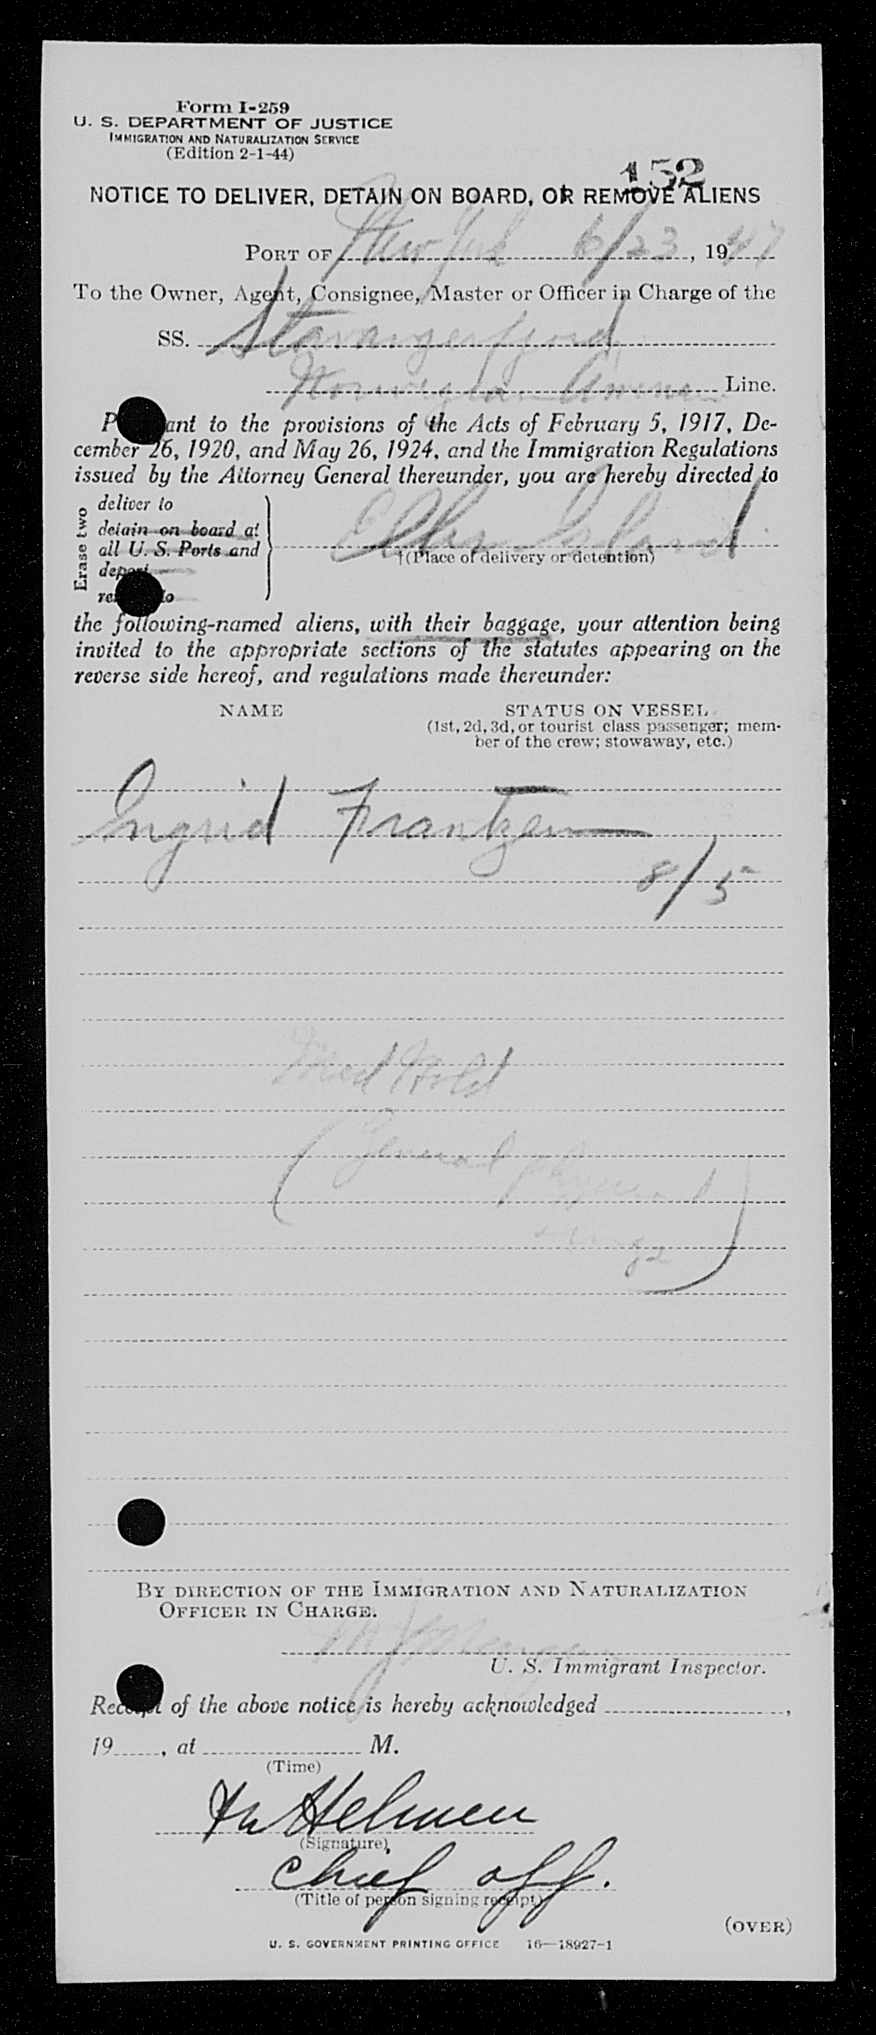 Form I-259
U. S. DEPARTMENT OF JUSTICE
IMMIGRATION AND NATURALIZATION SERVICE
(Edition 2-1-44)
152
NOTICE TO DELIVER, DETAIN ON BOARD, OR REMOVE ALIENS
PORT OF New York 6/23, 1947
To the Owner, Agent, Consignee, Master or Officer in Charge of the
SS. Stavangerfjord
Norwegian Amer Line.
P ant to the provisions of the Acts of February 5, 1917, De-
cember 26, 1920, and May 26, 1924, and the Immigration Regulations
issued by the Attorney General thereunder, you are hereby directed to
Erase two
deliver to
detain on board at
all U. S. Ports and
deport
re to
Ellis Island
†(Place of delivery or detention)
the following-named aliens, with their baggage, your attention being
invited to the appropriate sections of the statutes appearing on the
reverse side hereof, and regulations made thereunder:
NAME STATUS ON VESSEL
(1st, 2d, 3d, or tourist class passenger; mem-
ber of the crew; stowaway, etc.)
Ingrid Frantzen
8/5
Med Hold
(General physical
)
BY DIRECTION OF THE IMMIGRATION AND NATURALIZATION
OFFICER IN CHARGE.
M J
U. S. Immigrant Inspector.
Receipt of the above notice is hereby acknowledged ,
19 , at M.
(Time)
Helmen
(Signature)
Chief off.
(Title of person signing receipt)
(OVER)
U. S. GOVERNMENT PRINTING OFFICE 16—18927-1